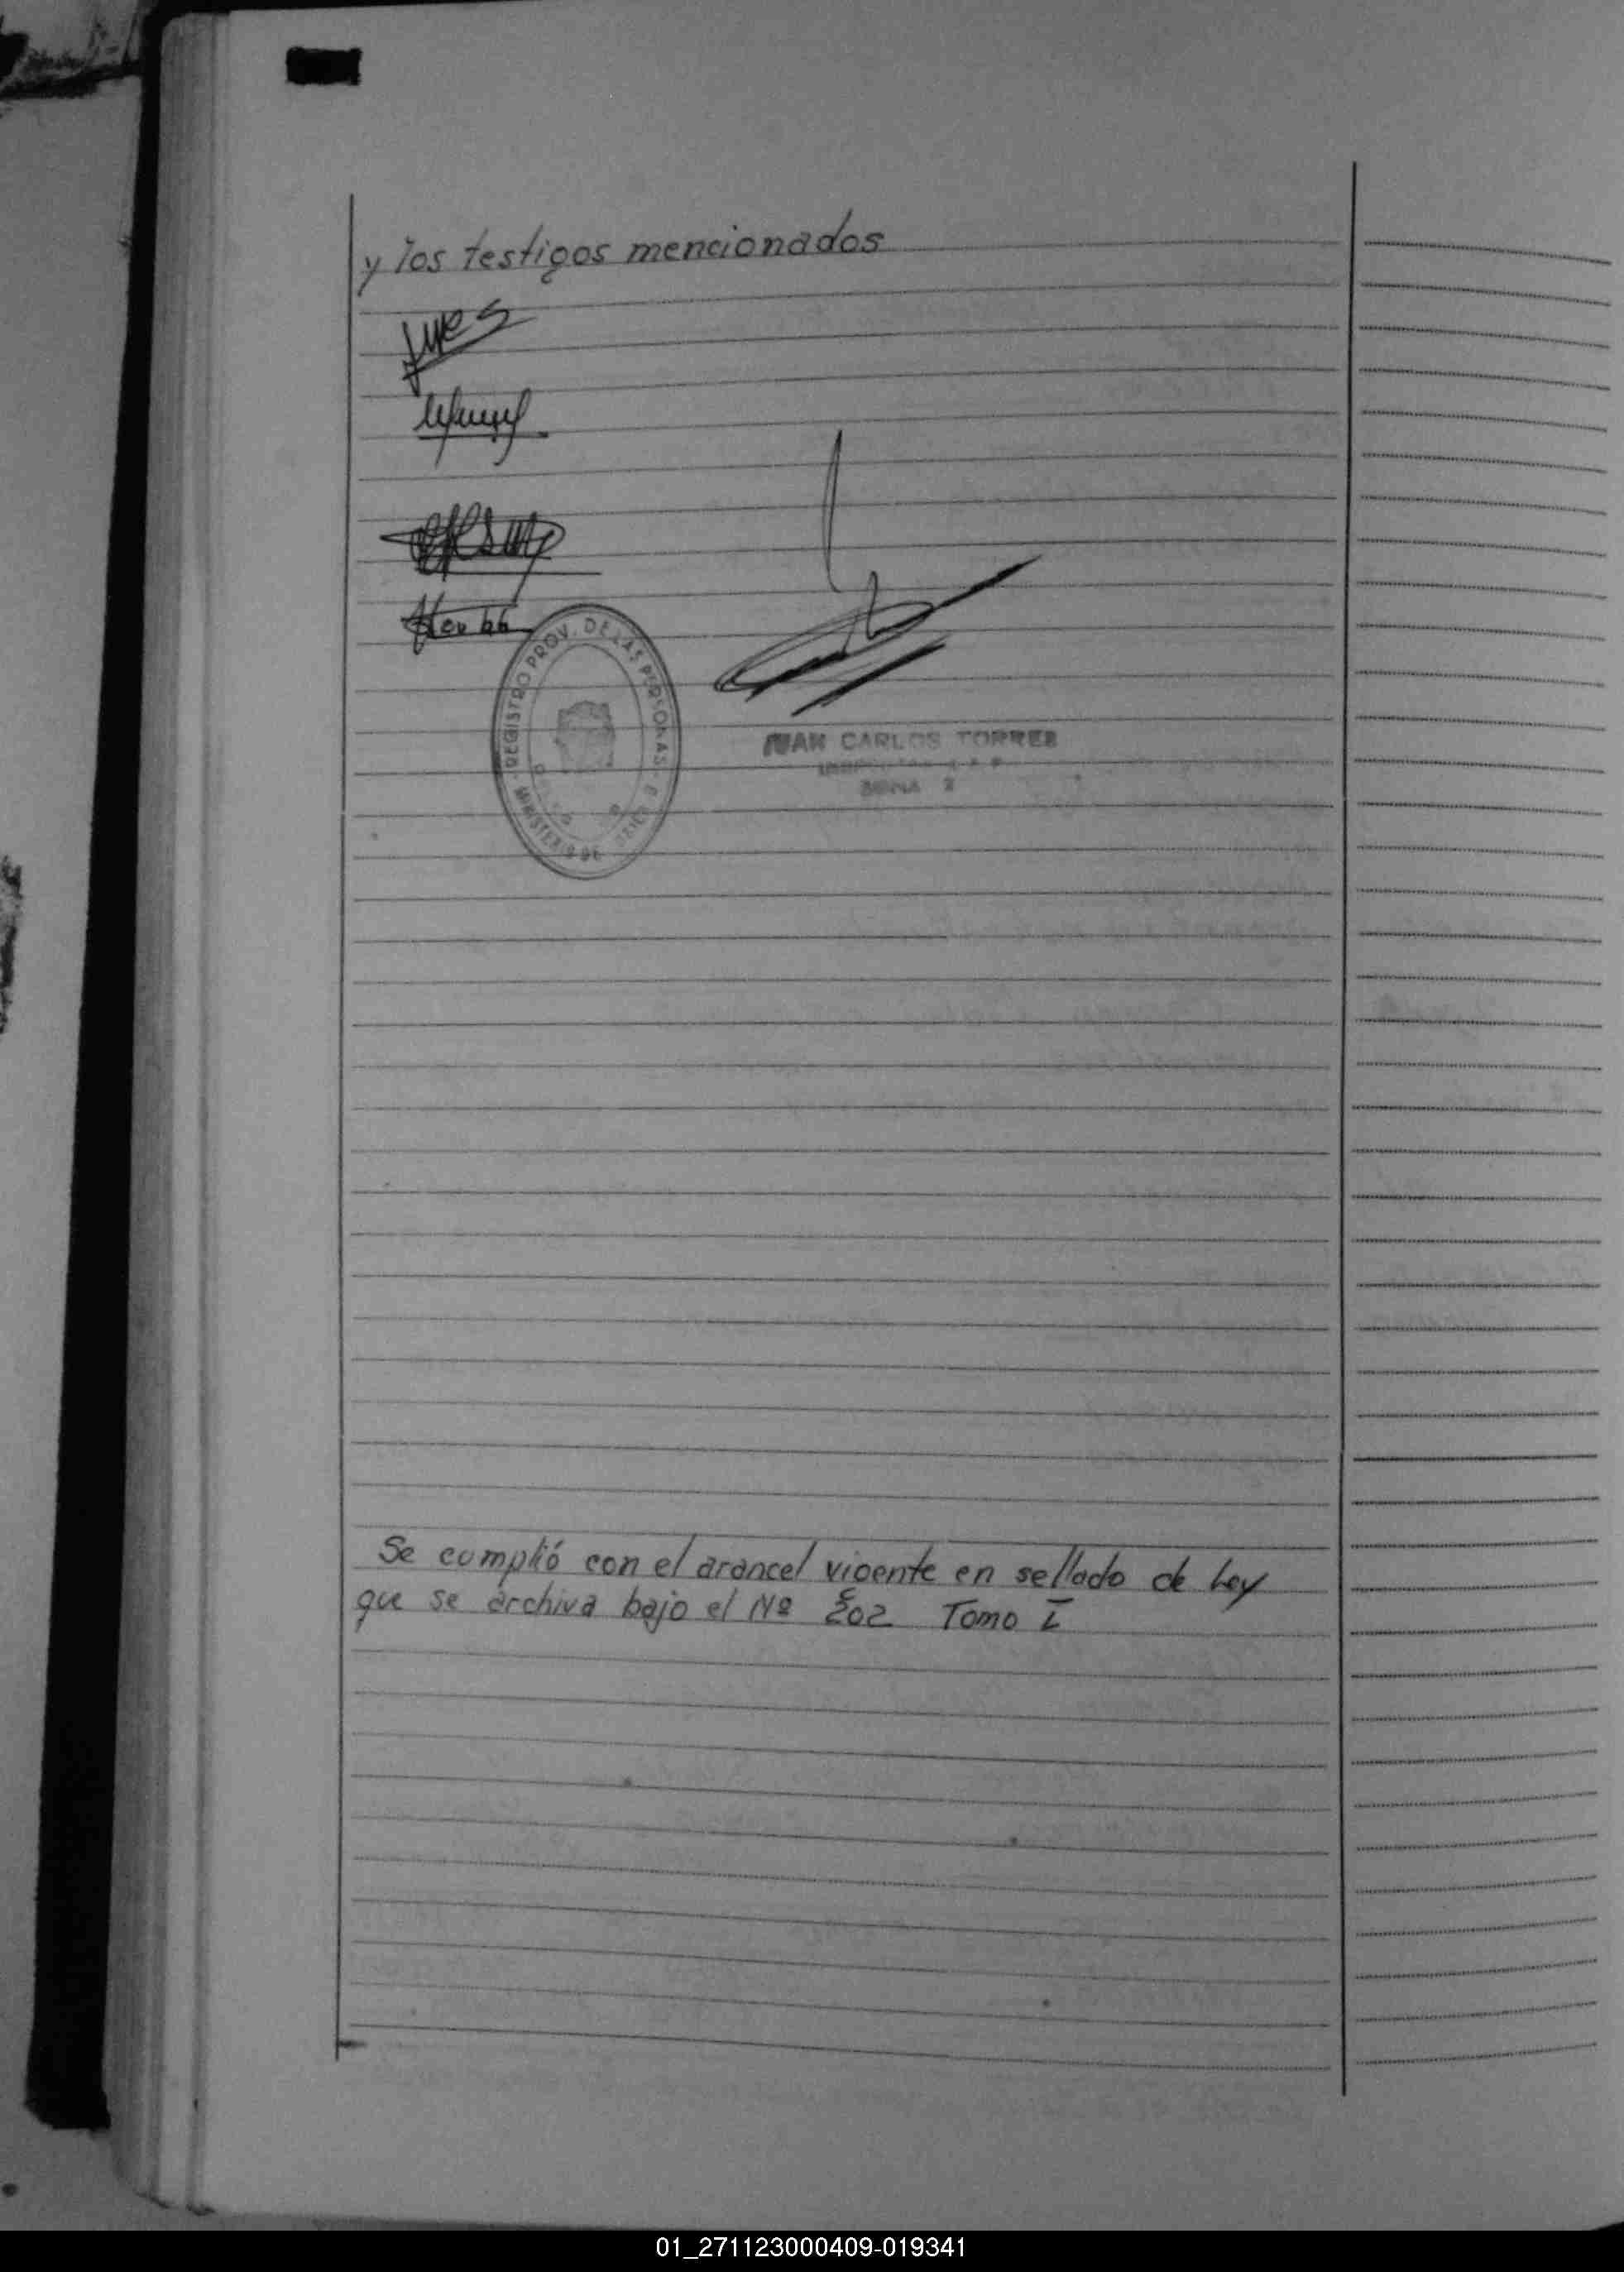 y los testigos mencionados
REGISTRO PROV. DE LAS PERSONAS
MINISTERIO DE
JUAN CARLOS TORRES
ZONA 2
Se cumplió con el arancel vigente en sellado de Ley
que se archiva bajo el Nº 202 Tomo I
01_271123000409-019341